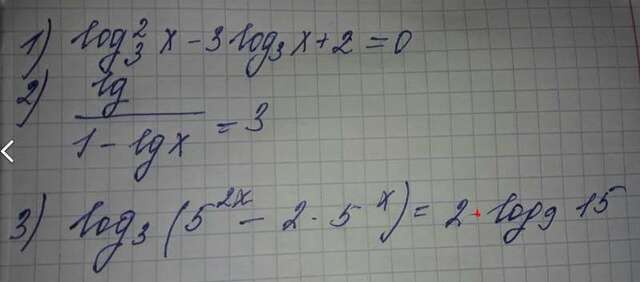 1) log₃² x - 3 log₃ x + 2 = 0
2) lg / (1 - lg x) = 3
3) log₃ (5^(2x) - 2 · 5^x) = 2 · log₉ 15